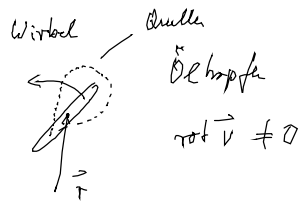 Wirbel
Quelle
Öltropfen
rot v⃗ ≠ 0
r⃗